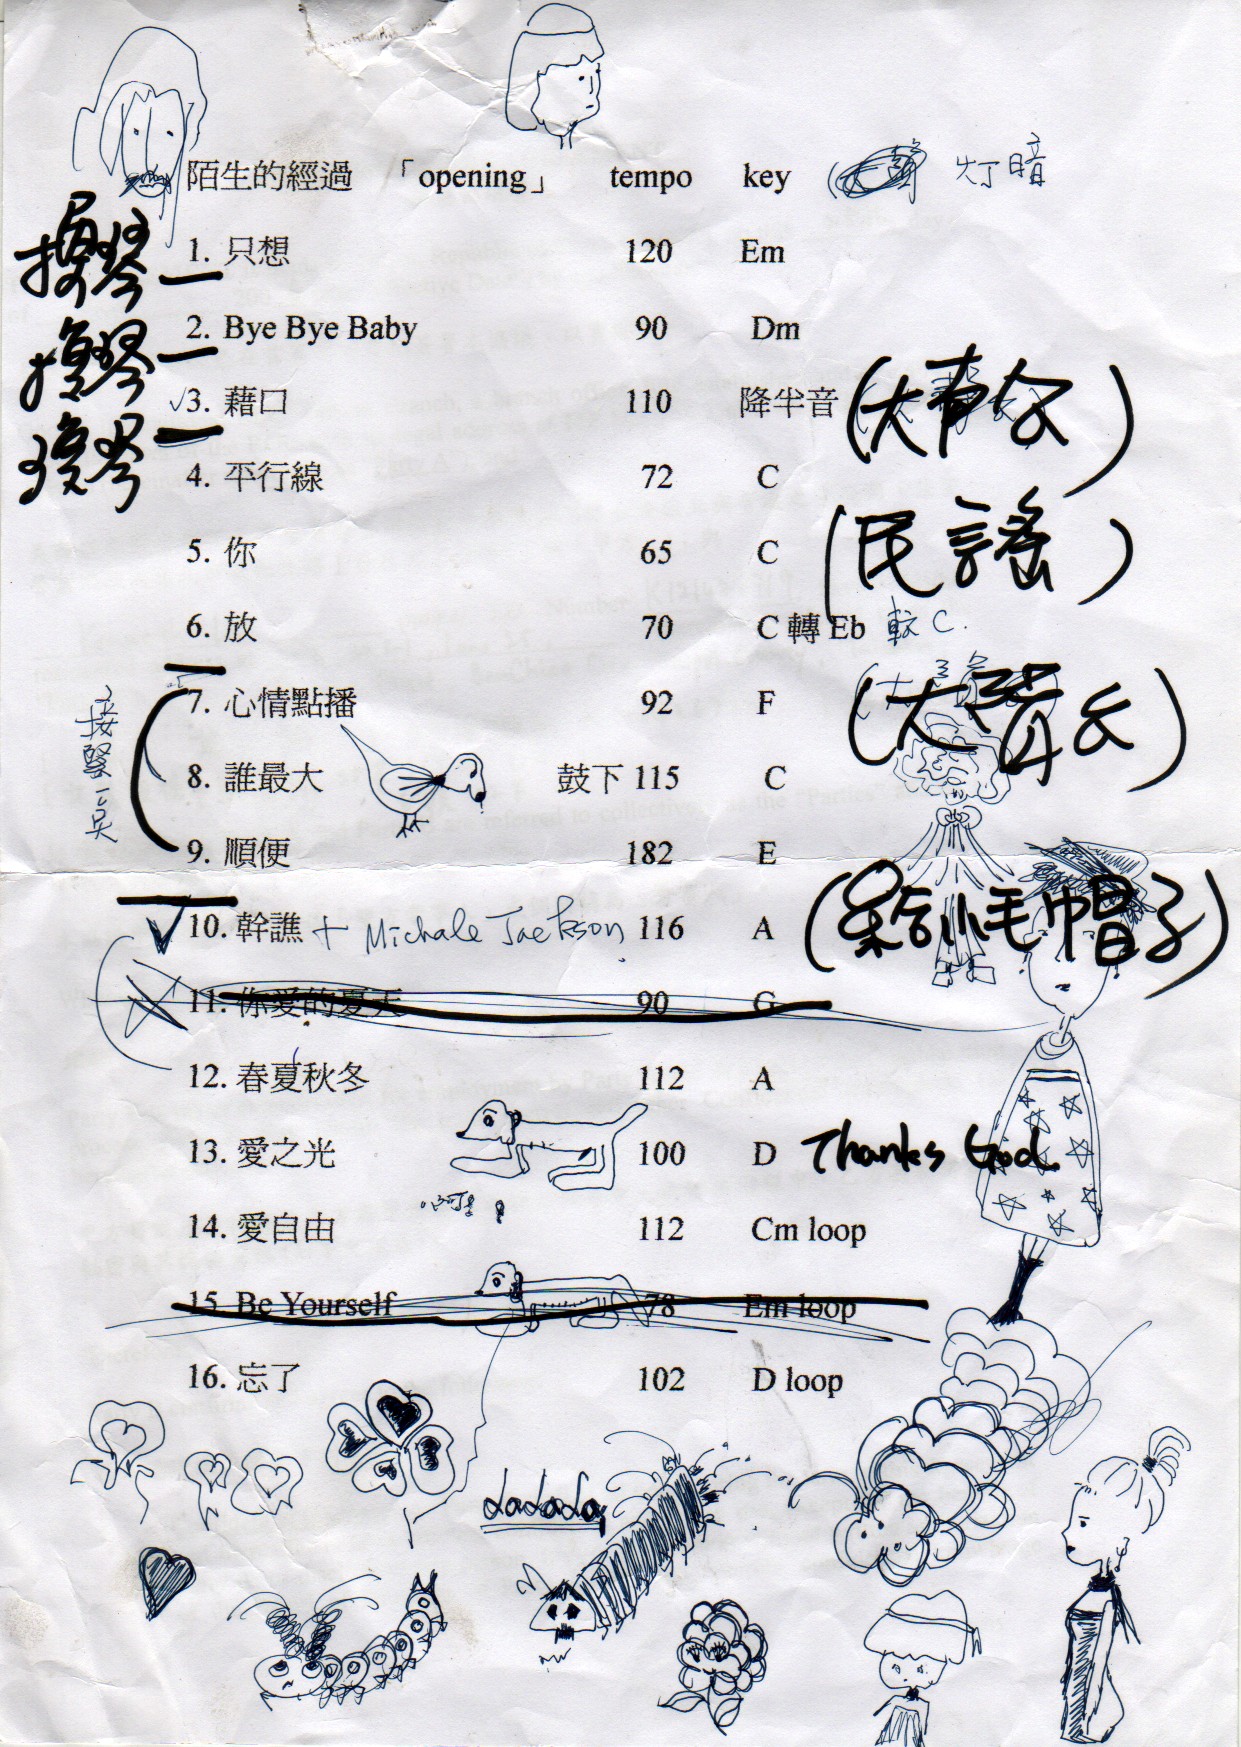 陌生的經過 「opening」 tempo key 灯暗
換琴
1. 只想 120 Em
換琴
2. Bye Bye Baby 90 Dm
換琴
√3. 藉口 110 降半音 (大聲公)
4. 平行線 72 C
5. 你 65 C (民謠)
6. 放 70 C 轉 Eb 較C.
接緊一點
7. 心情點播 92 F (大聲公)
8. 誰最大 鼓下 115 C
9. 順便 182 E
√10. 幹譙 + Michale Jackson 116 A (呆呆小毛帽子)
11. 你愛的夏天 90 G
12. 春夏秋冬 112 A
13. 愛之光 100 D Thanks God.
14. 愛自由 112 Cm loop
15. Be Yourself 78 Em loop
16. 忘了 102 D loop
dadada